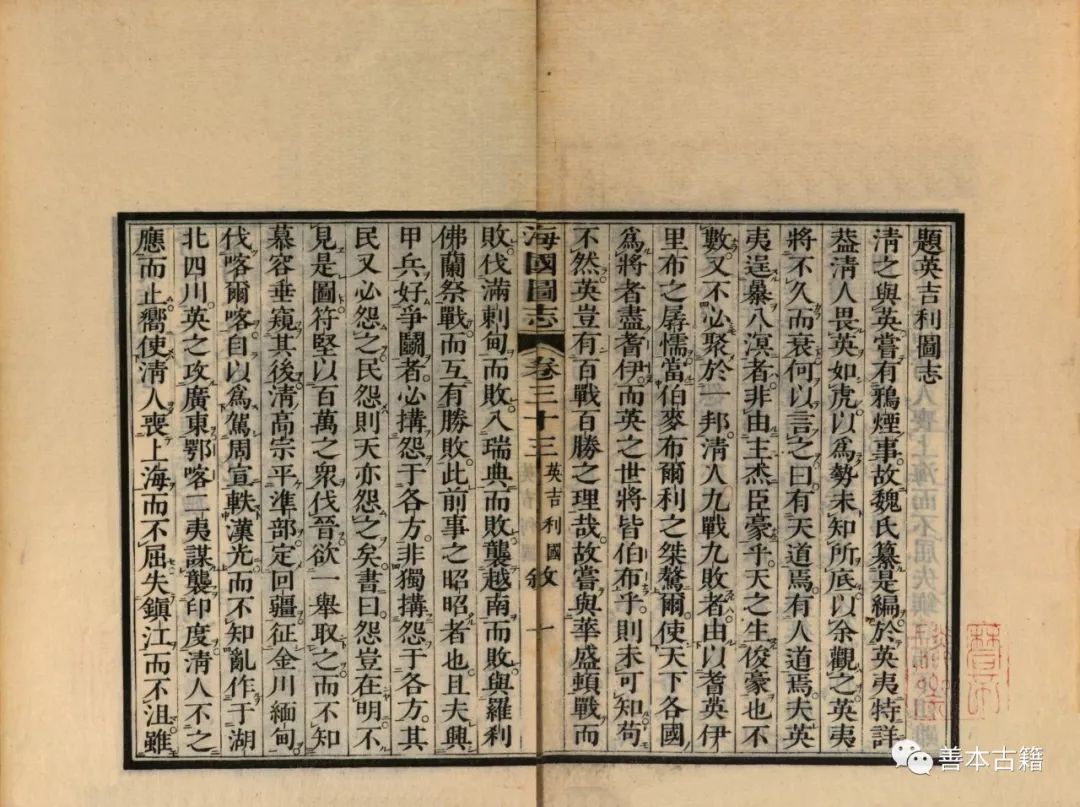 題英吉利圖志
清之與英嘗有鴉煙事故魏氏纂是編於英夷特詳
葢清人畏英如虎以爲勢未知所底以余觀之英夷
將不久而衰何以言之曰有天道焉有人道焉夫英
夷逞暴八溟者非由主杰臣豪乎天之生俊豪也不
數又不必聚於一邦清人九戰九敗者由以耆英伊
里布之孱懦當伯麥布爾利之桀驁爾使天下各國
爲將者盡耆伊而英之世將皆伯布乎則未可知苟
不然英豈有百戰百勝之理哉故嘗與華盛頓戰而
海國圖志 卷三十三 英吉利國 敘 一
敗伐滿剌甸而敗入瑞典而敗襲越南而敗與羅刹
佛蘭祭戰而互有勝敗此前事之昭昭者也且夫興
甲兵好爭鬭者必搆怨于各方非獨搆怨于各方其
民又必怨之民怨則天亦怨之矣書曰怨豈在明不
見是圖符堅以百萬之衆伐晉欲一舉取之而不知
慕容垂窺其後清高宗平準部定回疆征金川緬甸
伐喀爾喀自以爲駕周宣軼漢光而不知亂作于湖
北四川英之攻廣東鄂喀二夷謀襲印度清人不之
應而止嚮使清人喪上海而不屈失鎮江而不沮雖
善本古籍